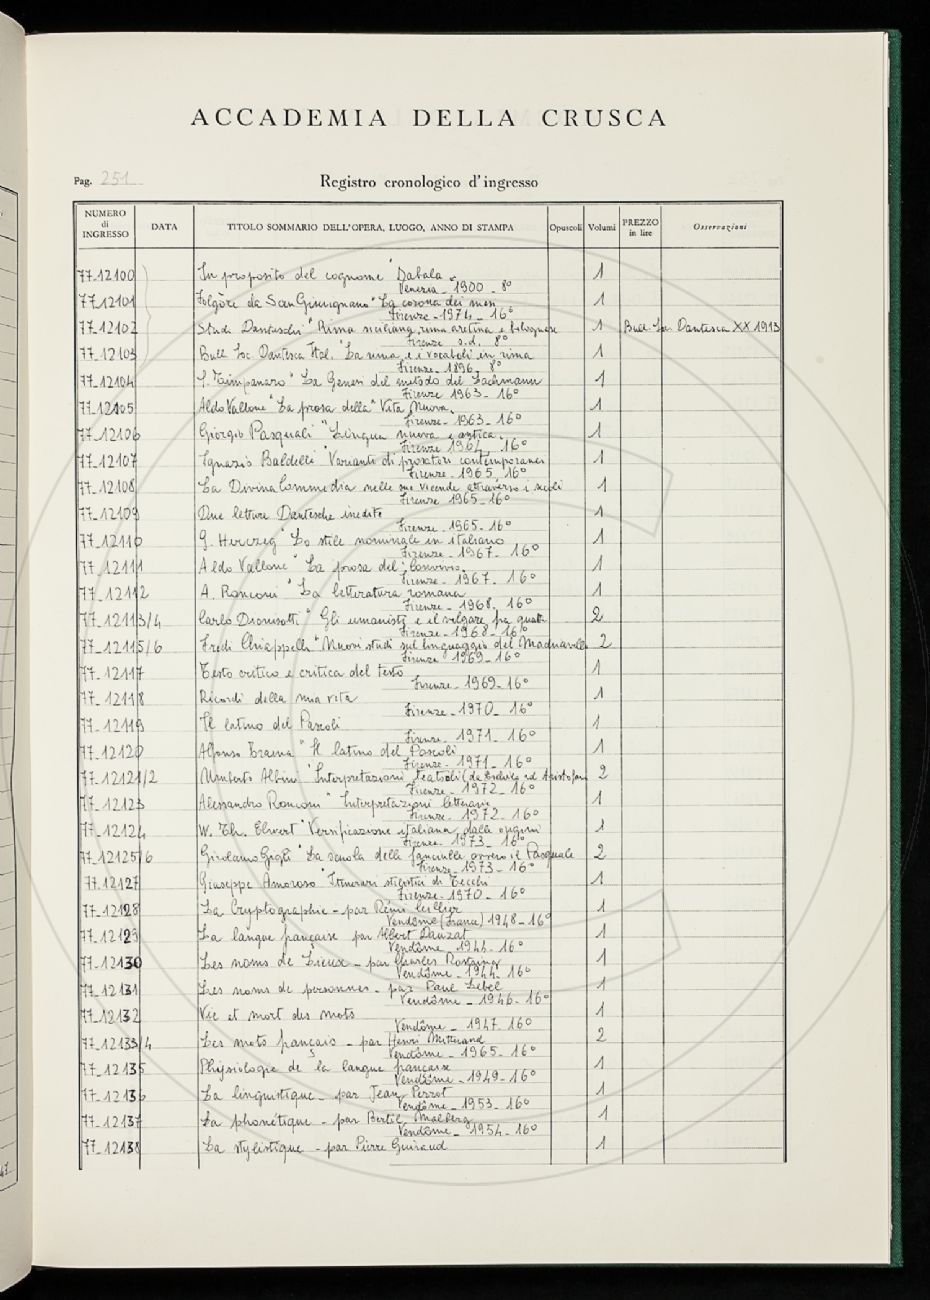 ACCADEMIA DELLA CRUSCA
Pag. 251
Registro cronologico d'ingresso
NUMERO di INGRESSO DATA TITOLO SOMMARIO DELL'OPERA, LUOGO, ANNO DI STAMPA Opuscoli Volumi PREZZO in lire Osservazioni
77-12100 In proposito del cognome "Dabala" 1
Venezia - 1900 - 8°
77-12101 Folgòre da San Gimignano "La corona dei mesi 1
Firenze - 1974 - 16°
77-12102 Studi Danteschi "Rima siciliana, rima aretina e bolognese 1 Bull. Soc. Dantesca XX 1913
Firenze s.d. 8°
77-12103 Bull. Soc. Dantesca Ital. "La rima e i vocaboli in rima 1
Firenze - 1896 - 8°
77-12104 S. Timpanaro "La Genesi del metodo del Lachmann 1
Firenze 1963 - 16°
77-12105 Aldo Vallone "La prosa della "Vita Nuova" 1
Firenze - 1963 - 16°
77-12106 Giorgio Pasquali "Lingua nuova e antica 1
Firenze 1964 - 16°
77-12107 Ignazio Baldelli "Varianti di prosatori contemporanei 1
Firenze - 1965 - 16°
77-12108 La Divina Commedia nelle sue vicende attraverso i secoli 1
Firenze 1965 - 16°
77-12109 Due letture Dantesche inedite 1
Firenze - 1965 - 16°
77-12110 G. Herczeg "Lo stile nominale in italiano 1
Firenze - 1967 - 16°
77-12111 Aldo Vallone "La prosa del "Convivio" 1
Firenze - 1967 - 16°
77-12112 A. Ronconi "La letteratura romana 1
Firenze - 1968 - 16°
77-12113/4 Carlo Dionisotti "Gli umanisti e il volgare fra quattro 2
Firenze - 1968 - 16°
77-12115/6 Fredi Chiappelli "Nuovi studi sul linguaggio del Machiavelli 2
Firenze 1969 - 16°
77-12117 Testo critico e critica del testo 1
Firenze - 1969 - 16°
77-12118 Ricordi della mia vita 1
Firenze - 1970 - 16°
77-12119 Il latino del Pascoli 1
Firenze - 1971 - 16°
77-12120 Alfonso Traina "Il latino del Pascoli 1
Firenze - 1971 - 16°
77-12121/2 Umberto Albini "Interpretazioni teatrali (da Eschilo ad Aristofane 2
Firenze - 1972 - 16°
77-12123 Alessandro Ronconi "Interpretazioni letterarie 1
Firenze - 1972 - 16°
77-12124 W. Th. Elwert "Versificazione italiana dalle origini 1
Firenze - 1973 - 16°
77-12125/6 Girolamo Gigli "La scuola delle fanciulle ovvero il Pasquale 2
Firenze - 1973 - 16°
77-12127 Giuseppe Amoroso "Itinerari stilistici di Tecchi 1
Firenze - 1970 - 16°
77-12128 La Cryptographie - par Rémi Ceillier 1
Vendôme (France) 1948 - 16°
77-12129 La langue française par Albert Dauzat 1
Vendôme - 1944 - 16°
77-12130 Les noms de Lieux - par Charles Rostaing 1
Vendôme - 1944 - 16°
77-12131 Les noms de personnes - par Paul Lebel 1
Vendôme - 1946 - 16°
77-12132 Vie et mort des mots 1
Vendôme - 1947 - 16°
77-12133/4 Les mots français - par Henri Mitterand 2
Vendôme - 1965 - 16°
77-12135 Physiologie de la langue française 1
Vendôme - 1949 - 16°
77-12136 La linguistique - par Jean Perrot 1
Vendôme - 1953 - 16°
77-12137 La phonétique - par Bertil Malberg 1
Vendôme - 1954 - 16°
77-12138 La stylistique - par Pierre Guiraud 1